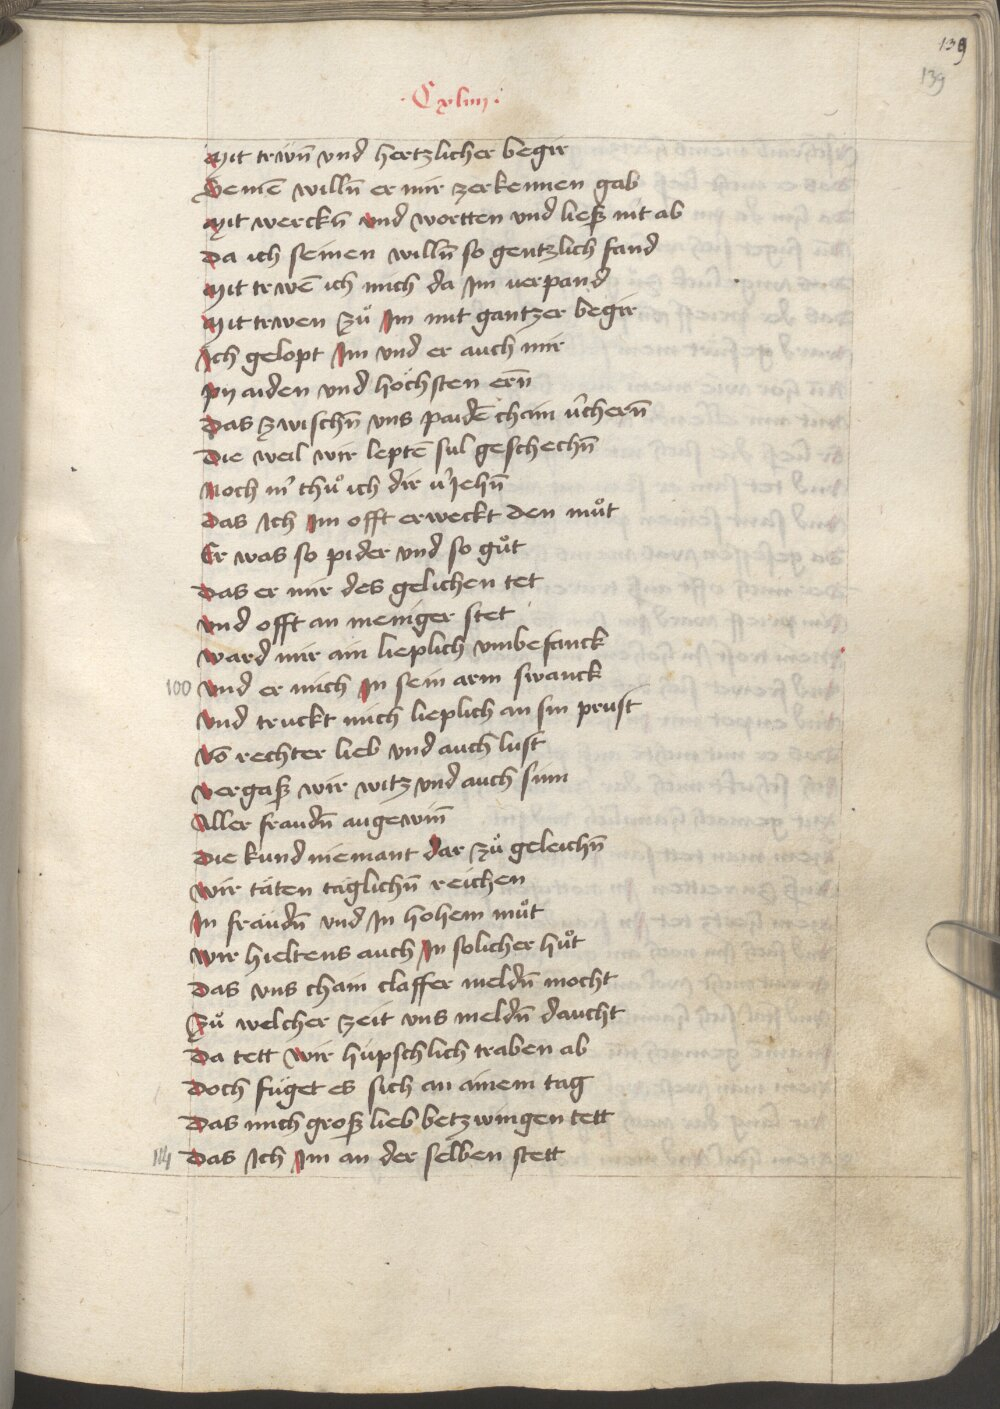 139
139
· Cxlııı ·
Mit trẅn̄ vnd hertzlicher begir
Seinē willn̄ er mir zerkennen gab
Mit werckn̄ vnd wortten vnd ließ nit ab
Da ich seinen willn̄ so gentzlich fand
Mit trwē ich mich da Im uerpand
Mit trwen Zuͦ Im mit gantzer begir
Ich gelopt Im vnd er auch mir
Pij aiden vnd höchsten ern̄
Das Zwischn̄ vns paidē chain v̓chern̄
Die weil wir leptē sul geschechn̄
Noch m̓ thuͦ ich dir v̓Jehn̄
Das Ich Im offt erweckt den muͦt
Er was so pider vnd so guͦt
Das er mir des gelichen tet
Vnd offt an meniger stet
Ward mir ain lieplich vmbefanck
100 Vnd er mich In sein arm swanck
Vnd truckt mich lieplich an sin prust
Vō rechter lieb vnd auch lust
Vergaß wir witz vnd auch sinn
Aller fraudn̄ angewin̄
Die kund niemant dar Zuͦ geleichn̄
Wir täten täglichn̄ reichen
In fräudn̄ vnd In hohem muͦt
Wir hieltens auch In solicher huͦt
Das vns chain claffer meldn̄ mocht
Zuͦ welcher Zeit vns meldn̄ daucht
Da tett wir hüpschlich traben ab
Doch füget es sich an ainem tag
Das mich groß lieb betzwingen tett
114 Das Ich Im an der selben stett